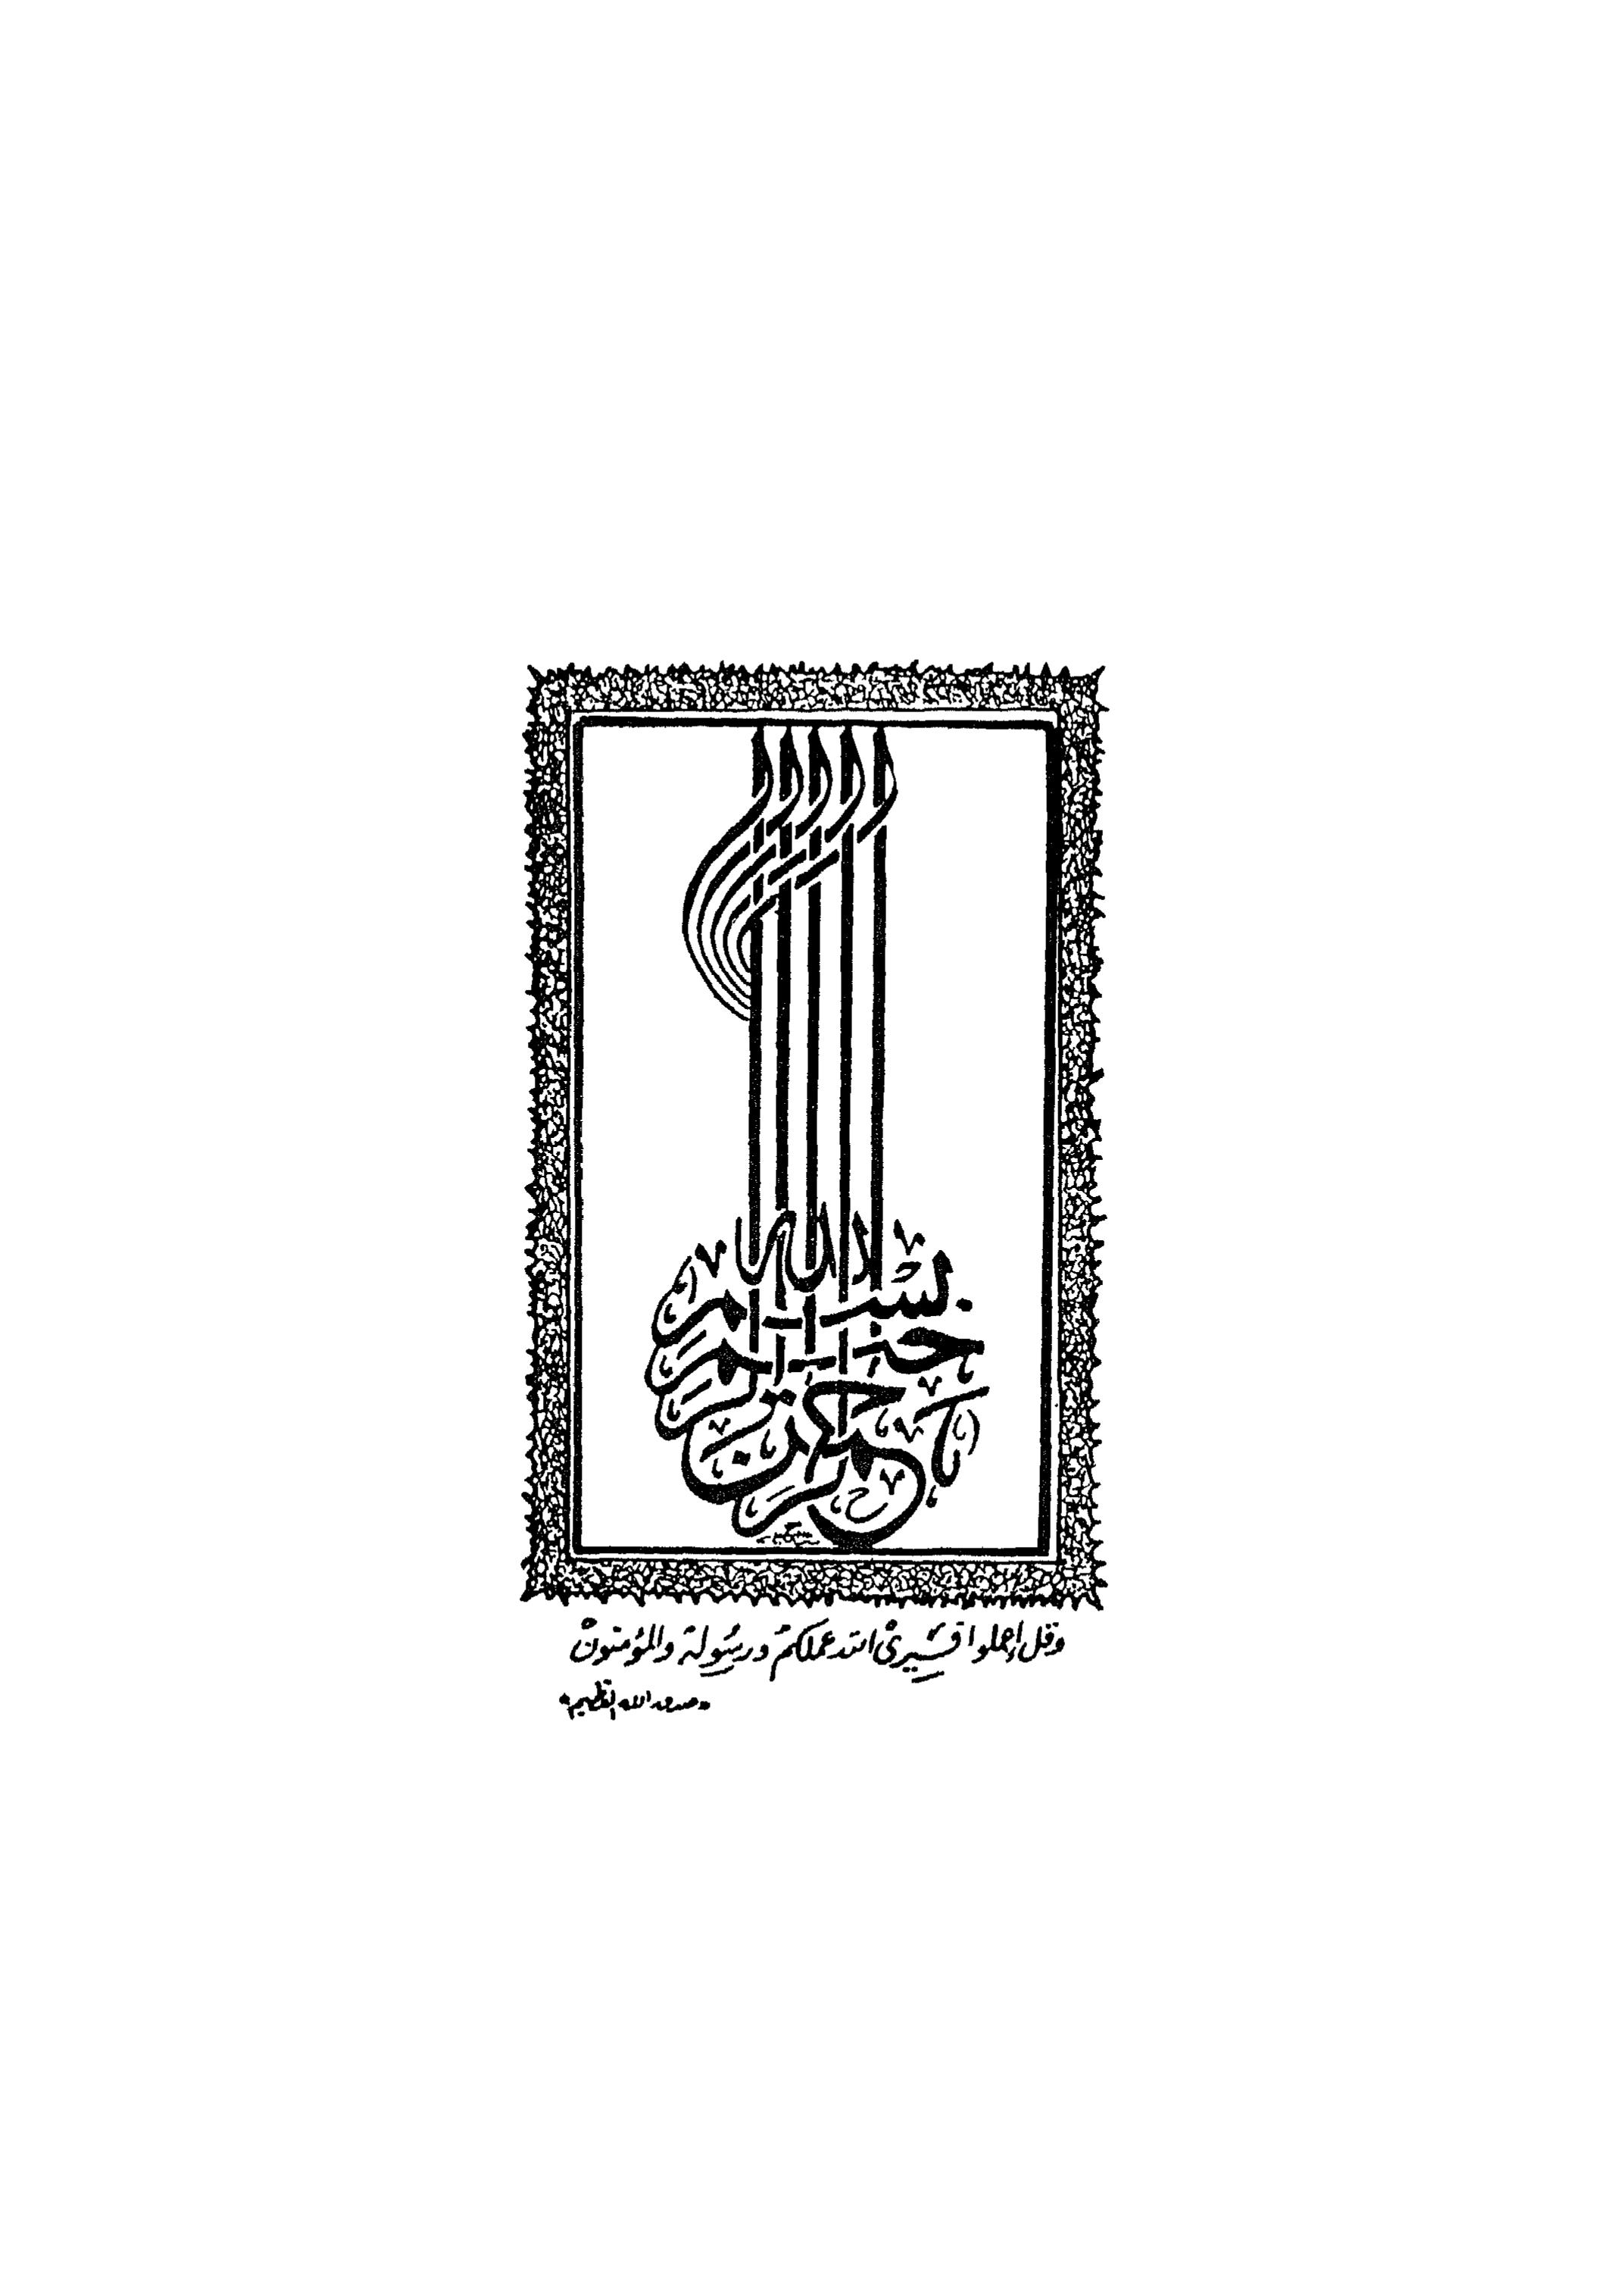 بسم الله الرحمن الرحيم
وقل إعملوا فسيرى الله عملكم ورسوله والمؤمنون
صدق الله العظيم